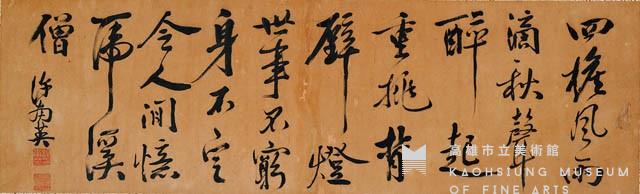 四檐風雨
滴秋聲
醉起
重挑背
壁燈
世事不窮
身不定
令人閒憶
虎溪
僧
許南英
高雄市立美術館
KAOHSIUNG MUSEUM
OF FINE ARTS